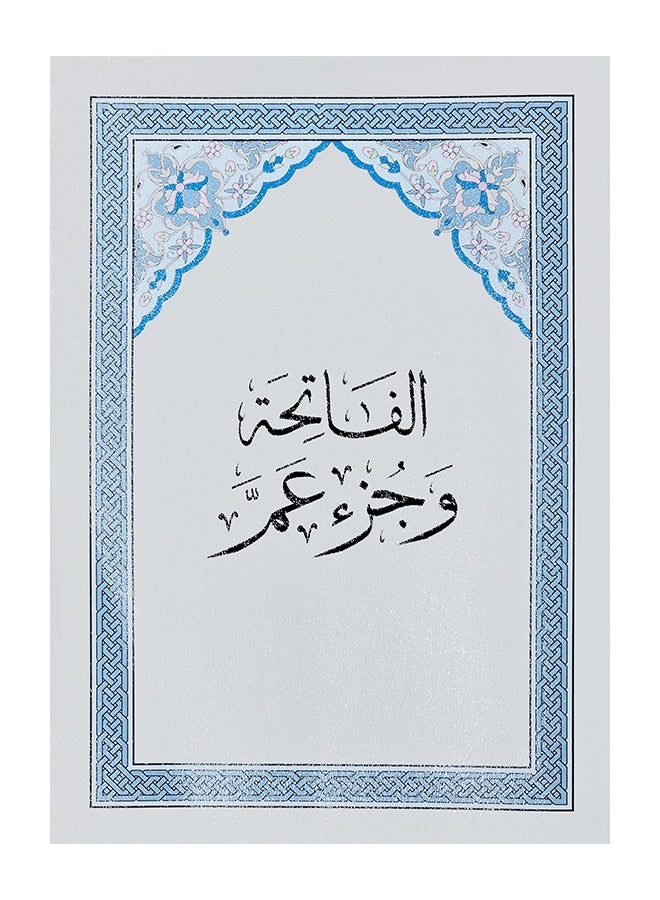 الفَاتِحَة
وَجُزء عَمَّ